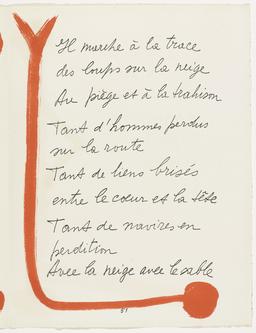 Il marche à la trace
des loups sur la neige
Au piège et à la trahison
Tant d'hommes perdus
sur la route
Tant de liens brisés
entre le cœur et la tête
Tant de navires en
perdition
Avec la neige avec le sable
51